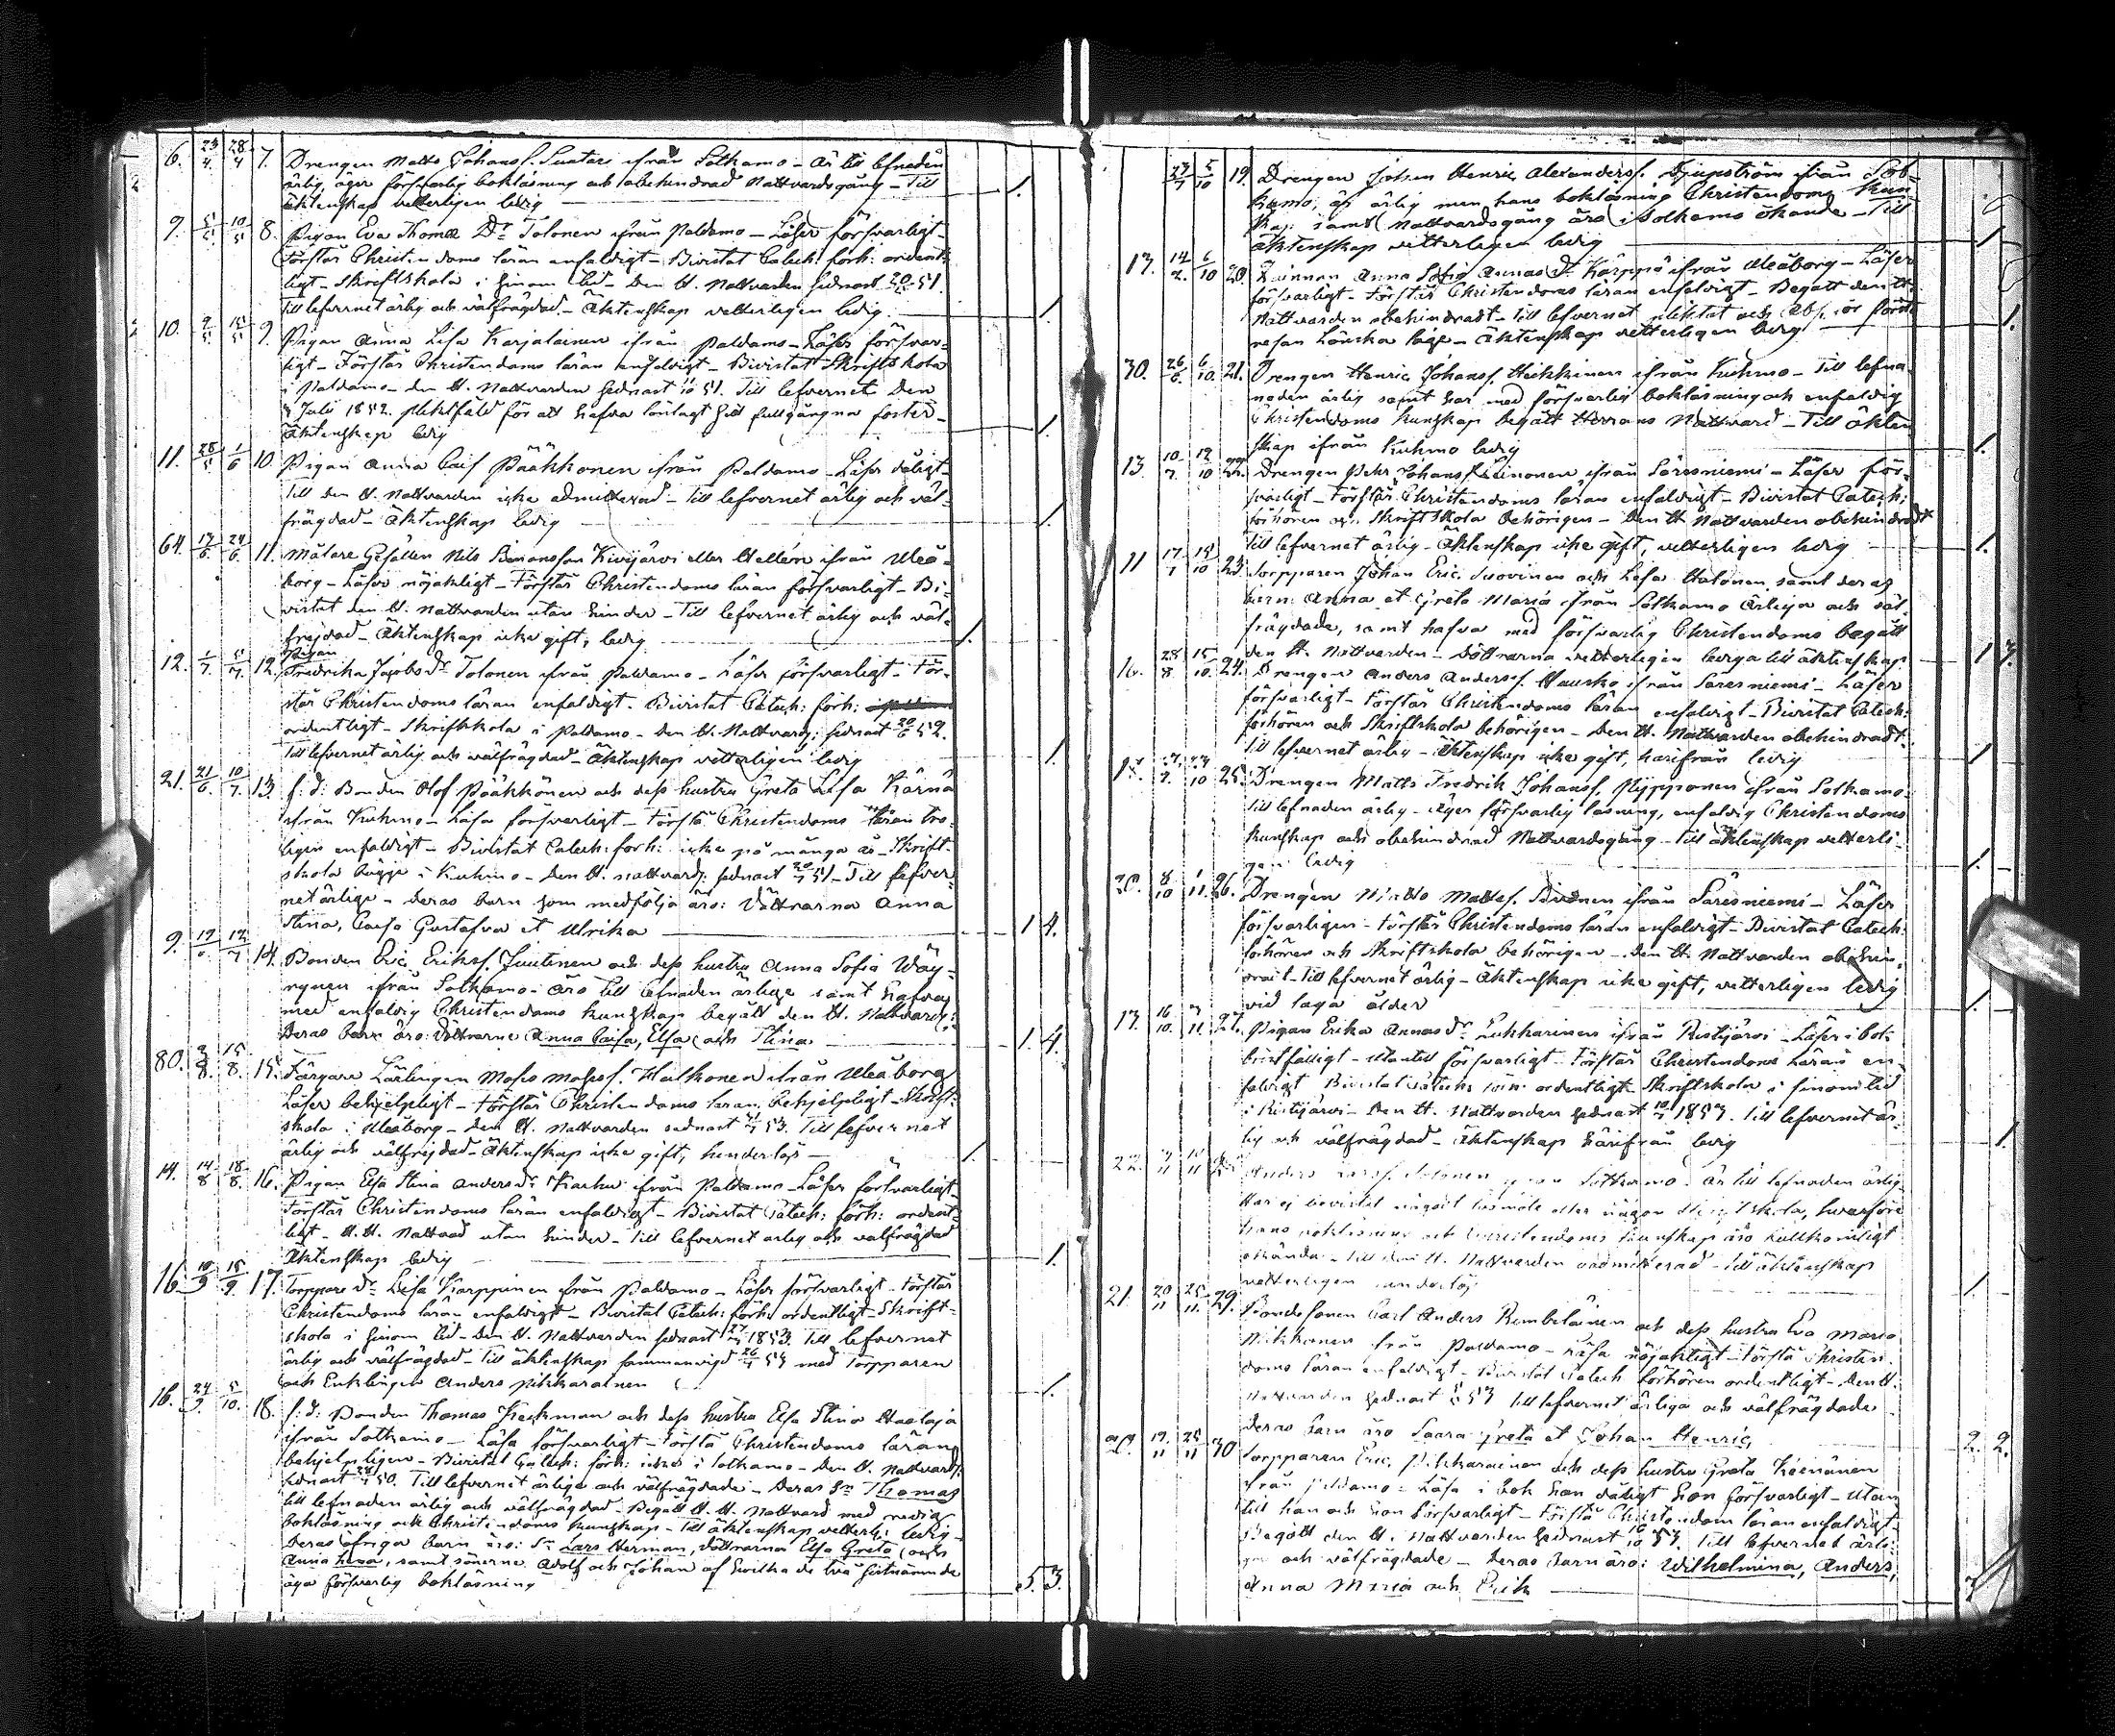 6. 23/4 28/4 7. Drengen Matts Johansf. Suutari ifrån Sotkamo – Är till lefnaden
ärlig, äger försvarlig bokläsning och obehindrad Nattvardsgång – Till
äktenskap vetterligen ledig 1.
9. 5/5 10/5 8. Pigan Eva Thomæ Dr Tolonen ifrån Paldamo – Läser försvarligt –
Förstår Christendoms läran enfaldigt – Bivistat Catech: förh: ordent-
ligt – Skriftskola i sinom tid – Den H. Nattvarden sednast 51.
Till lefvernet ärlig och välfrägdad – Äktenskap vetterligen ledig. 1.
10. 9/5 15/5 9. Pigan Anna Lisa Karjalainen ifrån Paldamo – Läser försvar-
ligt – Förstår Christendoms läran enfaldigt – Bivistat Skriftskola
i Paldamo – den H. Nattvarden sednast 51. Till lefvernet den
Juli 1852 pliktfäld för att hafva lönlagt sitt fullgångna foster –
Äktenskap ledig 1.
11. 28/5 1/6 10. Pigan Anna Caisa Pääkkönen ifrån Paldamo – Läser dåligt –
Till den H. Nattvarden icke admitterad – Till lefvernet ärlig och väl-
frägdad – Äktenskap ledig 1.
64. 17/6 24/6 11. Målare Gesällen Nils Simonsson Kivijärvi eller Hellén ifrån Uleå-
borg – Läser nöjaktligt – Förstår Christendoms läran försvarligt – Bi-
vistat den H. Nattvarden utan hinder – Till lefvernet ärlig och väl-
frejdad – Äktenskap icke gift, ledig 1.
Pigan
12. 1/7 12. Fredrika Jacobs Dr Tolonen ifrån Paldamo – Läser försvarligt – För-
står Christendoms läran enfaldigt. Bivistat Catech: förh:
ordentligt – Skriftskola i Paldamo – den H. Nattvard: sednast 20/6 52.
Till lefvernet ärlig och välfrägdad – Äktenskap vetterligen ledig 1.
21. 21/6 10/7 13. f: d: Bonden Olof Pääkkönen och dess hustru Greta Lisa Kärnä
ifrån Kuhmo – Läsa försvarligt – Förstå Christendoms läran tro-
ligen enfaldigt – Bivistat Catech: förh: icke på många år – Skrift-
skola begge i Kuhmo – den H. Nattvard: sednast 51 – Till lefver-
net ärlige – deras barn som medfölja äro: Döttrarna Anna
Stina, Caisa Gustafva et Ulrika 1 4.
9. 14. Bonden Eric Eriksf. Juutinen och dess hustru Anna Sofia Wäy-
rynen ifrån Sotkamo – äro till lefnaden ärlige samt hafva
med enfaldig Christendoms kunskap begått den H. Nattvard:
deras barn äro: Döttrarne Anna Caisa, Elsa och Stina 1. 4.
80. 9/8 15/8 15. Färgare Lärlingen Moses Mosesf. Halkonen ifrån Uleåborg
Läser behjelpligt – Förstår Christendoms läran behjelpligt – Skrift-
skola i Uleåborg – den H. Nattvarden sednast 53. Till lefvernet
ärlig och välfrejdad – Äktenskap icke gift, hinderlös – 1.
14. 14/8 18/8 16. Pigan Elsa Stina Anders Dr Karhu ifrån Paldamo – Läser försvarligt –
Förstår Christendoms läran enfaldigt – Bivistat Catech: förh: ordent-
ligt – H. H. Nattvard utan hinder – Till lefvernet ärlig och välfrägdad
Äktenskap ledig 1.
16. 10/9 15/9 17. Torpare Dr Lisa Karppinen ifrån Paldamo – Läser försvarligt – Förstår
Christendoms läran enfaldigt – Bivistat Catech: förh: ordentligt – Skrift-
skola i sinom tid – den H. Nattvarden sednast 1853. Till lefvernet
ärlig och välfrägdad – Till äktenskap sammanvigd med Torpparen
och Enklingen Anders Pikkarainen 1.
16. 24/9 5/10. 18. f: d: Bonden Thomas Heckman och dess hustru Elsa Stina Haataja
ifrån Sotkamo – Läsa försvarligt – Förstå Christendoms läran
behjelpligen – Bivistat Catech: förh: icke i Sotkamo – den H. Nattvard:
sednast 50. Till lefvernet ärliga och välfrägdade – Deras Sn Thomas
till lefnaden ärlig och välfrägdad – Begått H. H. Nattvard med redig
bokläsning och Christendoms kunskap – Till äktenskap vetterl: ledig –
Deras öfriga barn äro: Sn Lars Herman, Döttrarna Elsa Greta och
Anna Lena, samt sönerne Adolf och Johan af hvilka de två sistnämnde
äga försvarlig bokläsning 5. 3.
27/7 5/10 19. Drengen Johan Henric Alexandersf. Djupström ifrån Sot-
kamo, är ärlig men hans bokläsning Christendoms kun-
skap samt Nattvardsgång äro i Sotkamo okände – Till
äktenskap vetterligen ledig 1.
17. 14/2 6/10 20. Qvinnan Anna Sofia Annas Dr Karppa ifrån Uleåborg – Läser
försvarligt – Förstår Christendoms läran enfaldigt – Begått den H.
Nattvarden obehindradt – Till lefvernet pliktat och abs. för första
resan Lönska läge – Äktenskap vetterligen ledig 1.
30. 26/6 6/10 21. Drengen Henric Johansf. Heikkinen ifrån Kuhmo – Till lefna-
naden ärlig samt har med försvarlig bokläsning och enfaldig
Christendoms kunskap begått Herrans Nattvard – Till äkten-
skap ifrån Kuhmo ledig 1.
13. 10/7 12/10 22. Drengen Pehr Johansf. Leinonen ifrån Säresniemi – Läser för-
svarligt – Förstår Christendoms läran enfaldigt – Bivistat Catech:
förhören och Skriftskola behörigen – Den H. Nattvarden obehindradt
Till lefvernet ärlig – Äktenskap icke gift, vetterligen ledig 1.
11 17/7 15/10 23. Torpparen Johan Eric Suovinen och Lisa Halonen samt deras
barn: Anna et Greta Maria ifrån Sotkamo Ärliga och väl-
frägdade, samt hafva med försvarlig Christendoms begått
den H. Nattvarden – Döttrarna vetterligen lediga till äktenskap 1
16. 28/8 15/10 24. Drengen Anders Andersf. Hausko ifrån Säresniemi – Läser
försvarligt – Förstår Christendoms läran enfaldigt – Bivistat Catech:
förhören och Skriftskola behörigen – Den H. Nattvarden obehindradt.
Till lefvernet ärlig – Äktenskap icke gift, härifrån ledig 1
25. Drengen Matts Fredrik Johansf. Pyypponen ifrån Sotkamo.
Till lefnaden ärlig – Äger försvarlig läsning, enfaldig Christendoms
kunskap och obehindrad Nattvardsgång – Till äktenskap vetterli-
gen ledig 1.
20. 8/10 1/11 26. Drengen Matts Mattsf. ifrån Säresniemi – Läser
försvarligen – Förstår Christendoms läran enfaldigt – Bivistat Catech:
förhören och Skriftskola behörigen – Den H. Nattvarden obehin-
drat – Till lefvernet ärlig – Äktenskap icke gift, vetterligen ledig
vid laga ålder 1.
17. 16/10 27. Pigan Erika Annas Dr Lukkarinen ifrån Ristijärvi – Läser i bok
bristfälligt – Utantill försvarligt – Förstår Christendoms läran en-
faldigt Bivistat Catech: förh: ordentligt – Skriftskola i sinom tid
i Ristijärvi – Den H. Nattvarden sednast 1853. Till lefvernet är-
lig och välfrägdad – Äktenskap härifrån ledig 1.
22. Anders Larsf. Tolonen ifrån Sotkamo. Är till lefnaden ärlig –
Har ej bevistat något läsmöte eller någon Skriftskola, hvarföre
hans bokläsning och Christendoms kunskap äro fullkomligt
okända – Till den H. Nattvarden oadmitterad – Till äktenskap
vetterligen hinderlös 1.
21. 20/11 25/11 29. Bondesonen Carl Anders Rimbeläinen och dess hustru Eva Maria
Mikkonen från Paldamo – Läsa nöjaktligt – Förstå Christen-
doms läran enfaldigt – Bivistat Catech förhören ordentligt – Den H.
Nattvarden sednast 53 Till lefvernet ärliga och välfrägdade
deras barn äro Saara Greta et Johan Henric 2. 2.
19/11 25/11 30 Torpparen Eric Pikkarainen och dess hustru Greta Keinänen
från Paldamo – Läsa i bok han dåligt hon försvarligt – Utan-
till han och hon försvarligt – Förstå Christendom läran enfaldigt –
Begått den H. Nattvarden sednast 53. Till lefvernet ärli-
ga och välfrägdade – deras barn äro: Wilhelmina, Anders,
Anna Maria och Erik